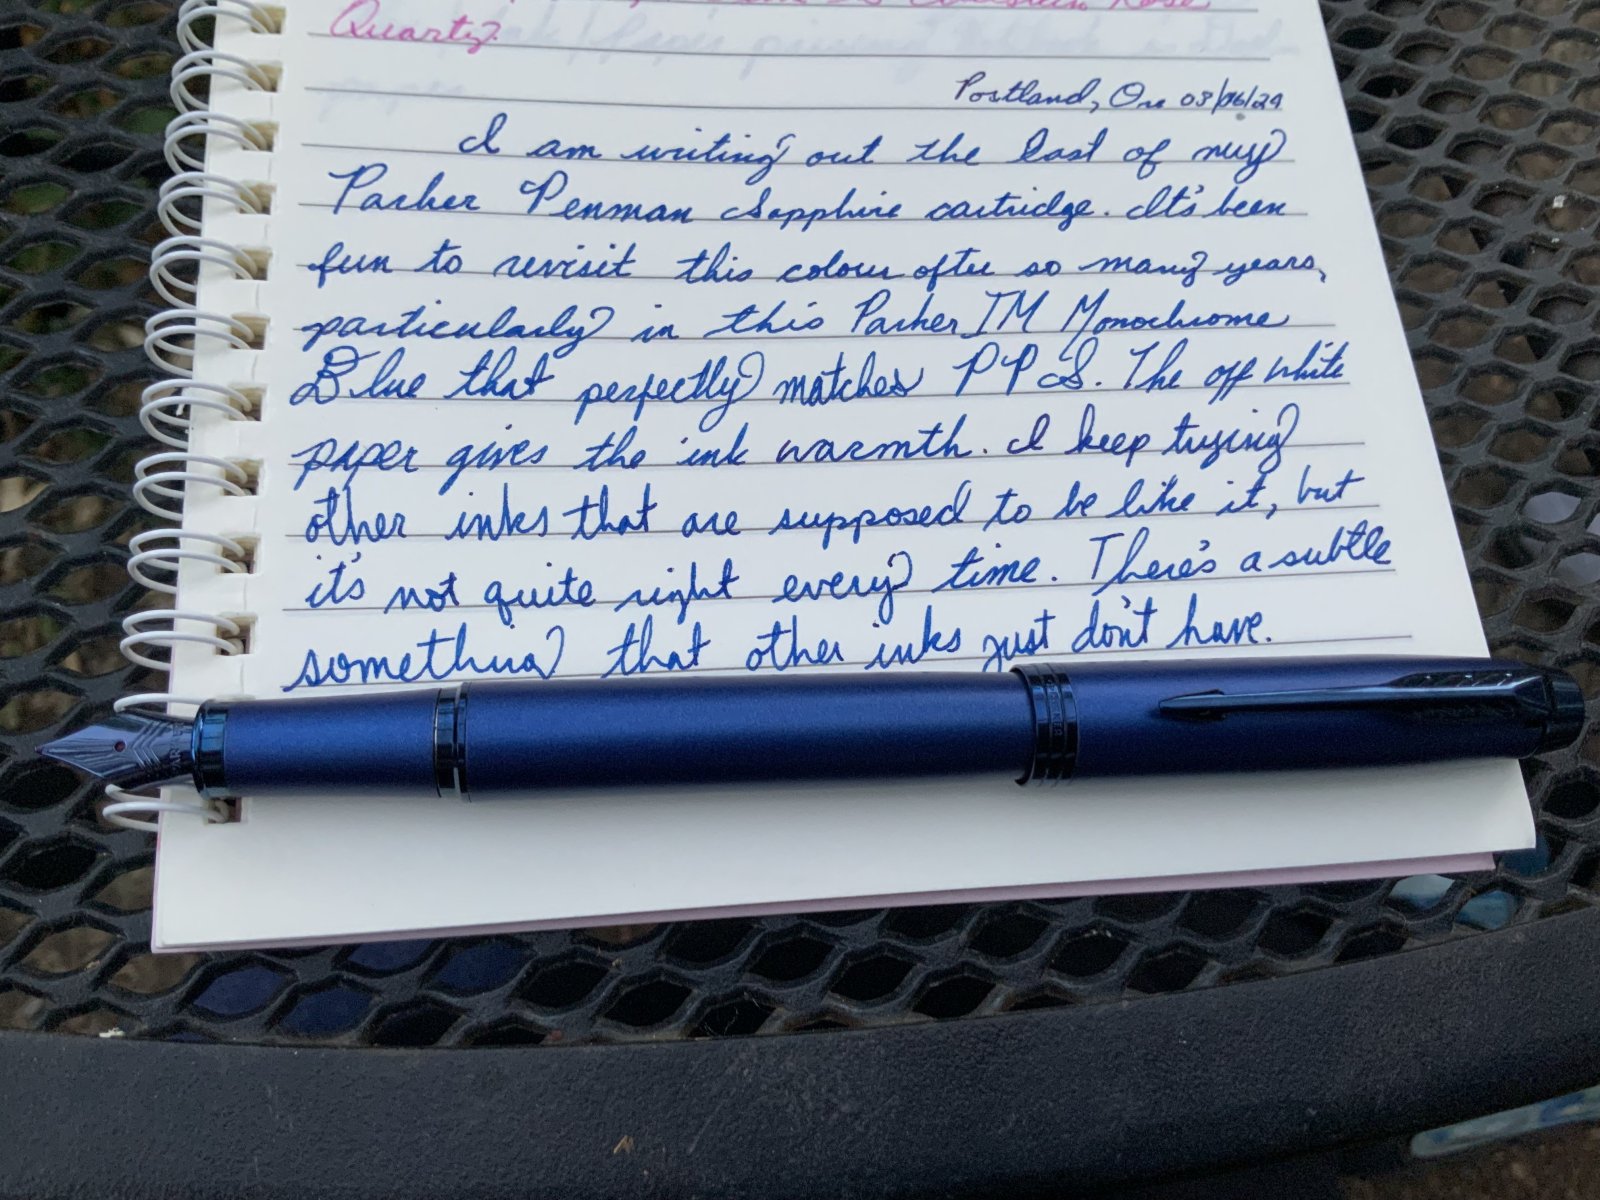 Rose
Quartz.
Portland, Ore 03/06/24
I am writing out the last of my
Parker Penman Sapphire cartridge. It's been
fun to revisit this colour after so many years,
particularly in this Parker IM Monochrome
Blue that perfectly matches PPS. The off white
paper gives the ink warmth. I keep trying
other inks that are supposed to be like it, but
it's not quite right every time. There's a subtle
something that other inks just don't have.